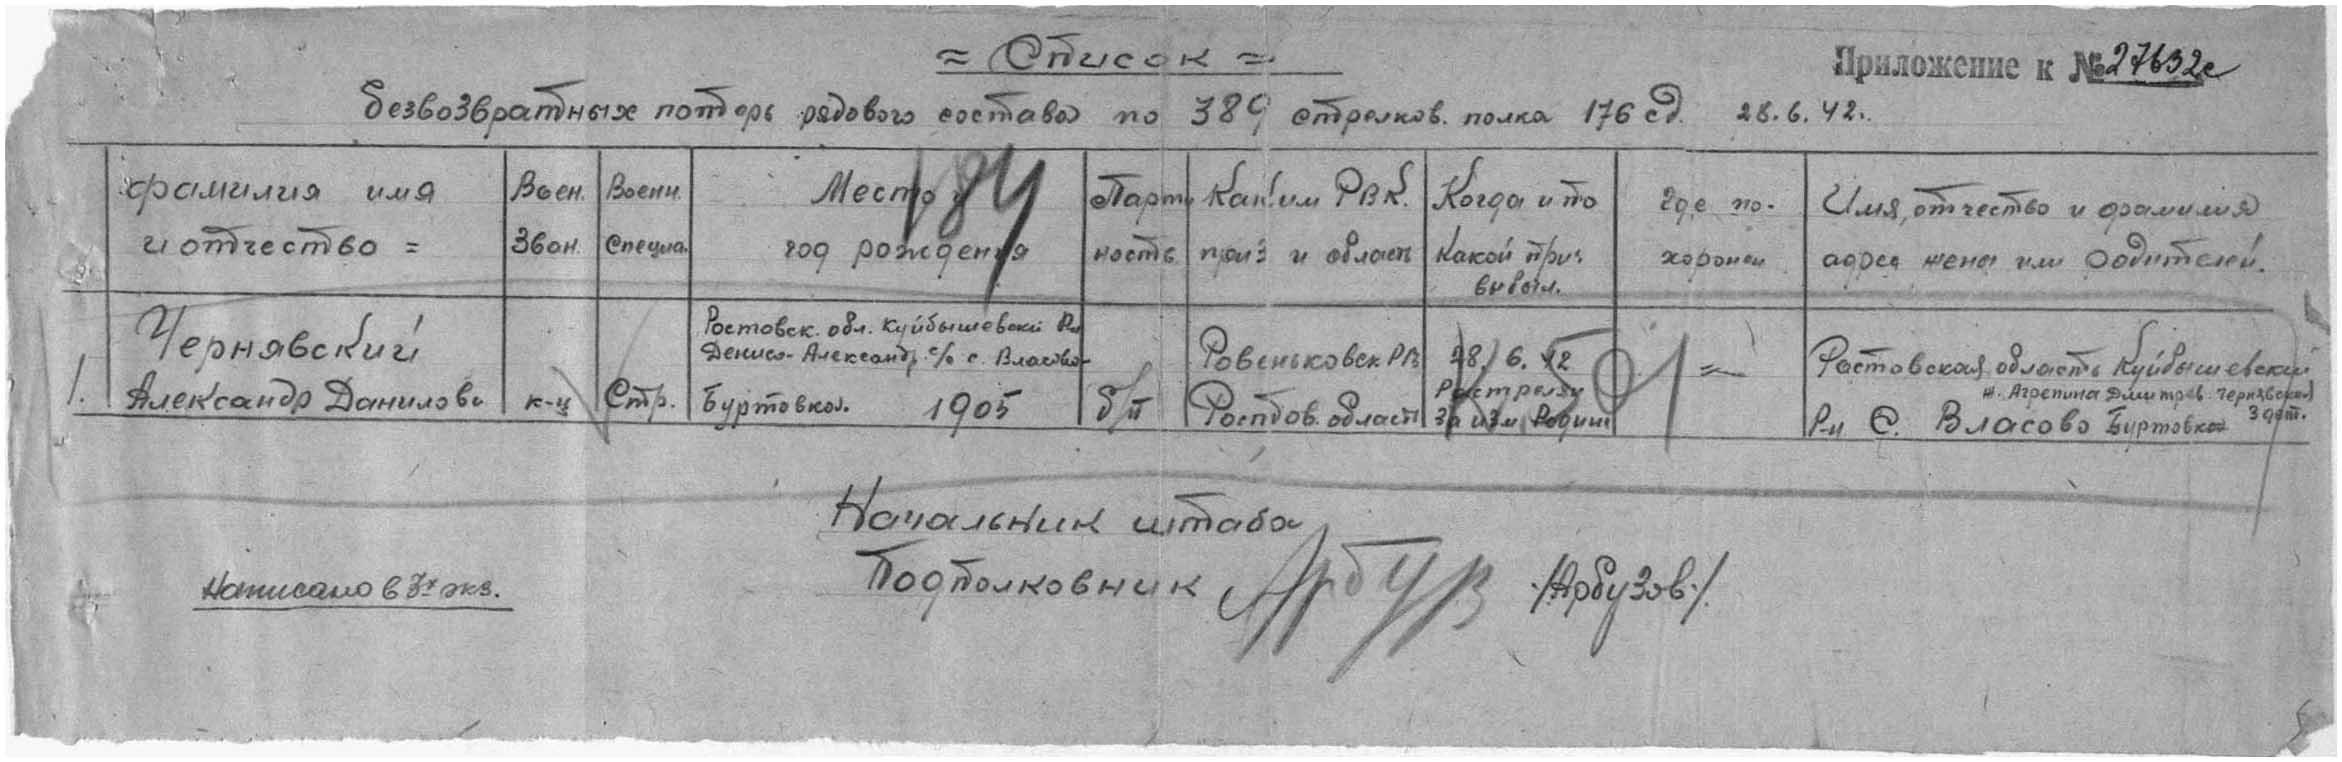 = Список =
Приложение к № 27632с
безвозвратных потерь рядового состава по 389 стрелков. полка 176 сд. 28.6.42.
184
фамилия имя
и отчество =
Воен.
Зван.
Воени.
Специа.
Место и
год рождения
Парти
ность
Каким РВК.
приз и област
Когда и по
какой при.
выбыл.
Где по-
хоронен
Имя, отчество и фамилия
адрес жены или родителей.
1.
Чернявский
Александр Данилови
к-ц
Стр.
Ростовск. обл. Куйбышевский Р-н
Денисо-Александр. с/с с. Власово-
Буртовка. 1905
б/п
Ровеньковск РВ
Ростов. област
28. 6. 42
Расстрелян
за изм Родине
=
Ростовская область Куйбышевский
ж. Агрепина Дмитрев. Чернявская
3 дет.
Р-н С. Власово Буртовка
Начальник штаба
Подполковник Арбуз /Арбузов/.
Написано в 3х экз.